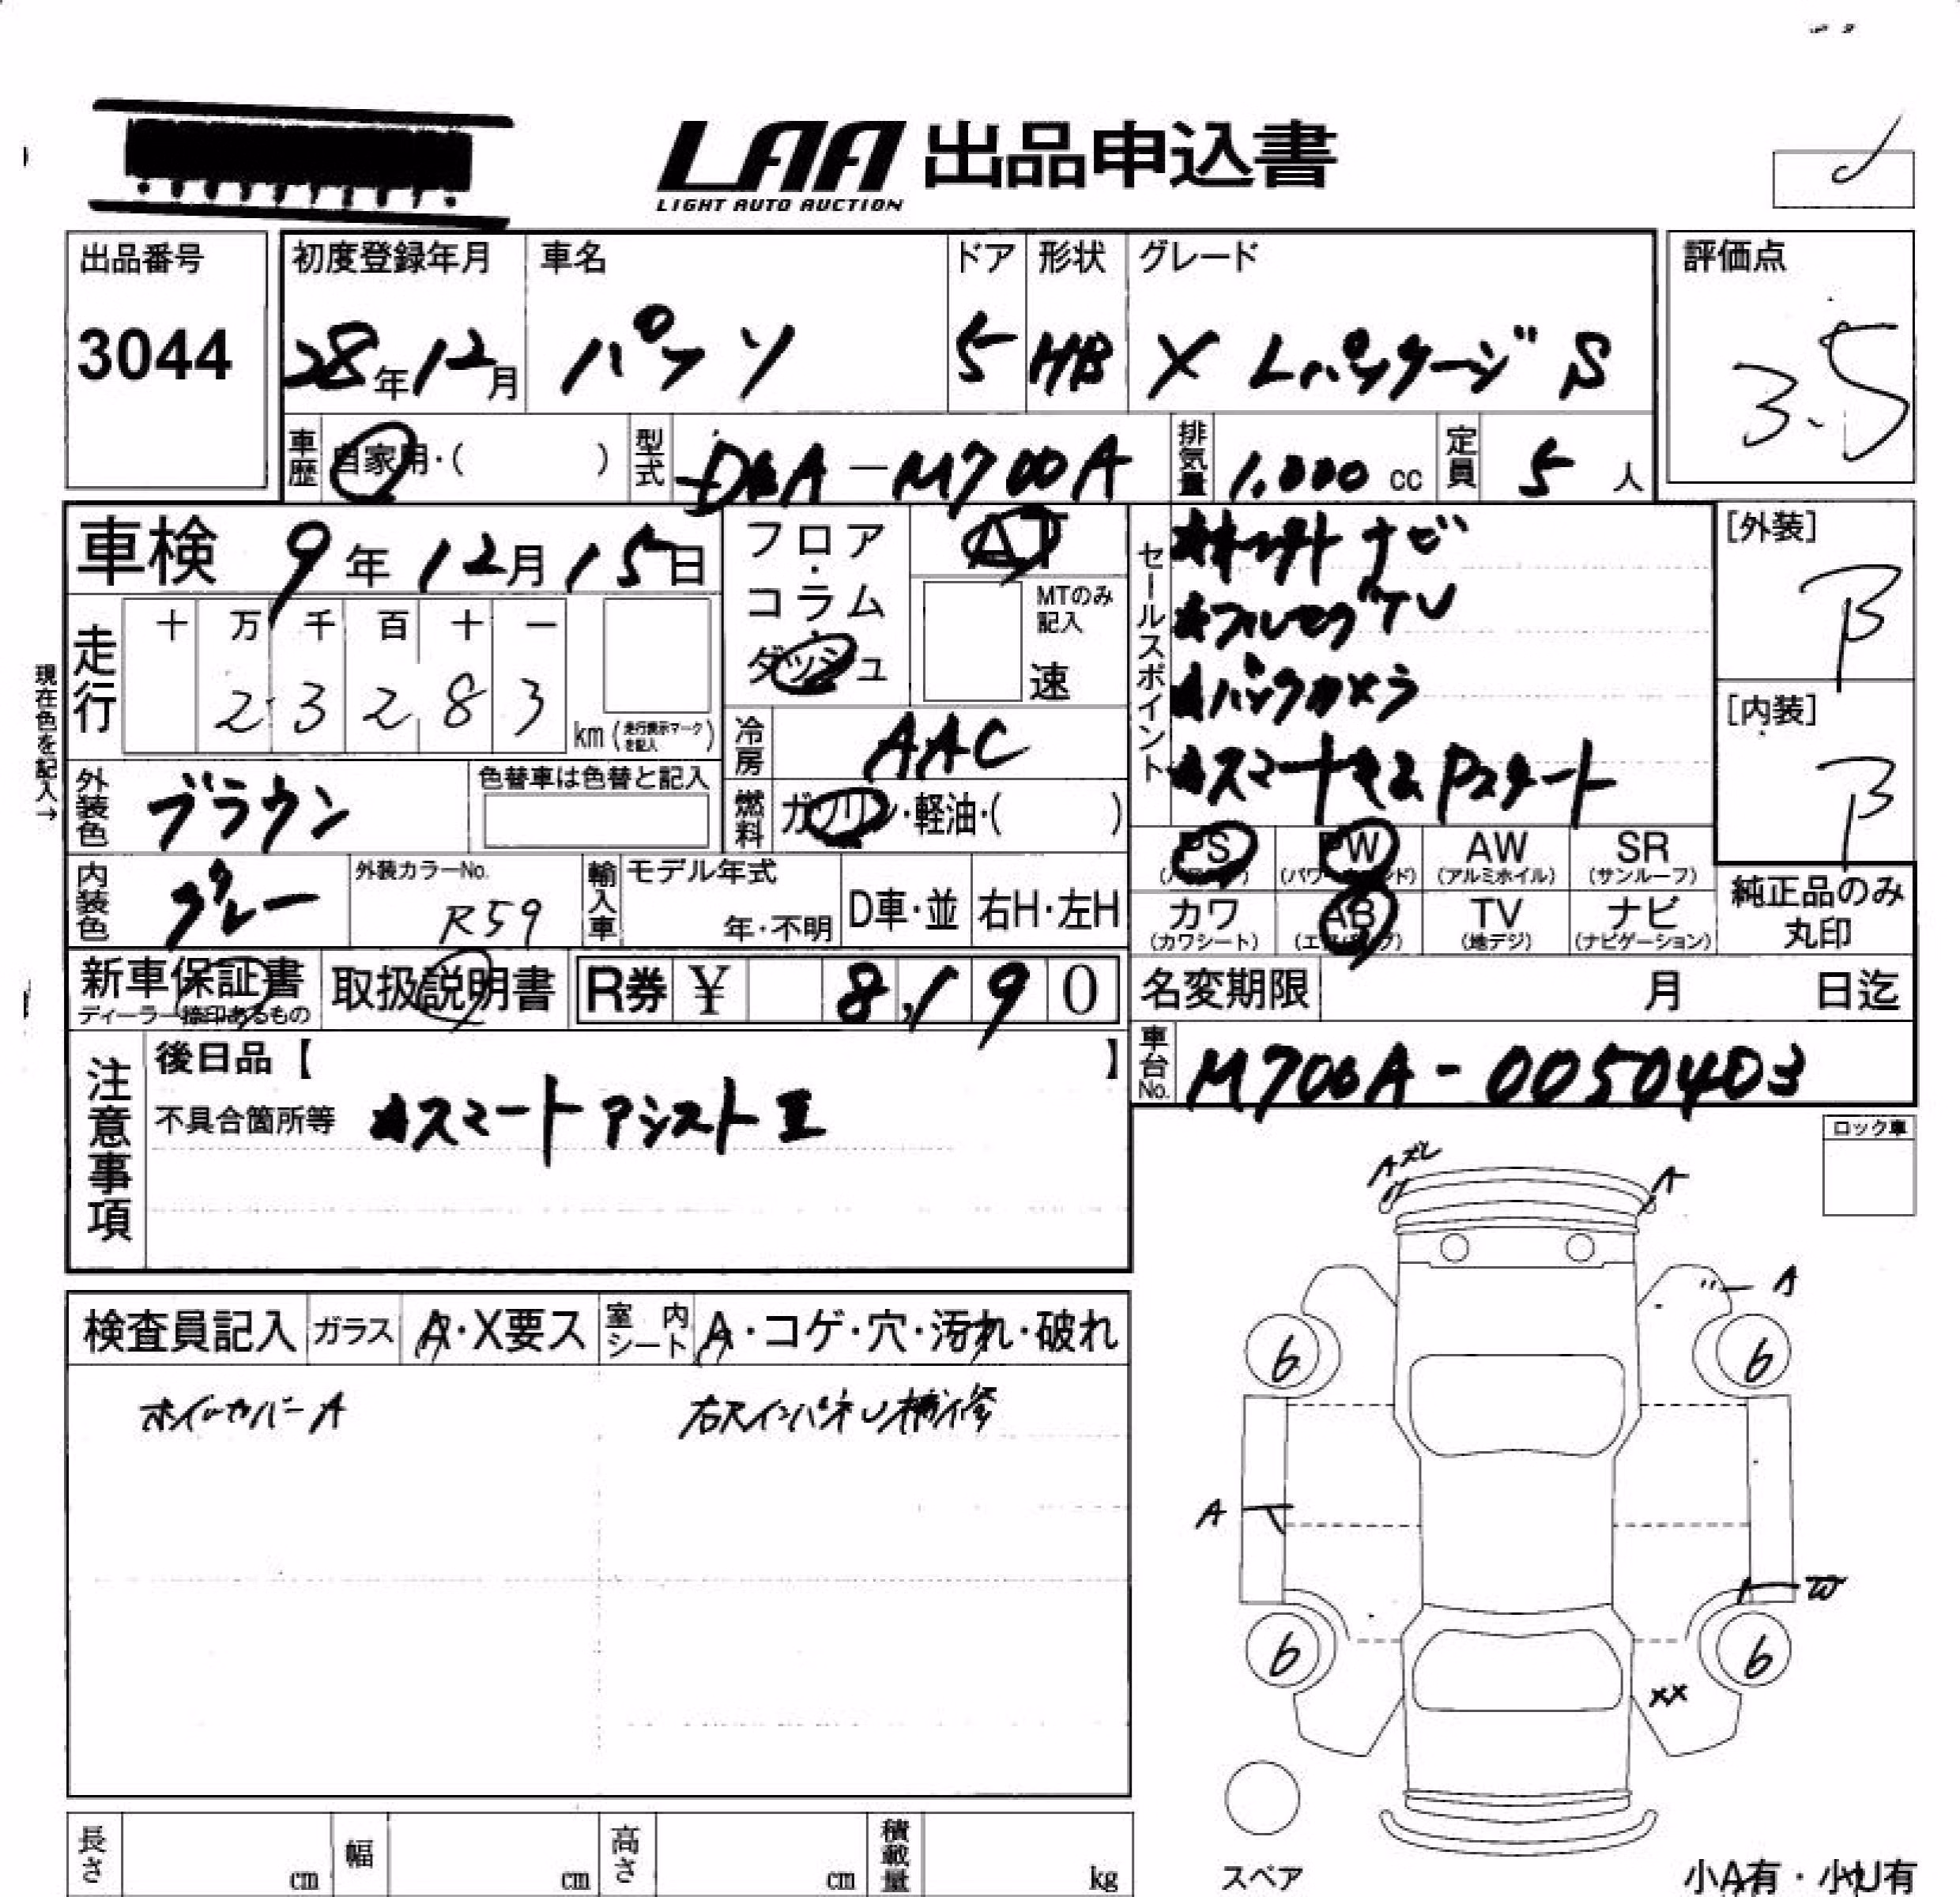 LAA 出品申込書
LIGHT AUTO AUCTION
出品番号
3044
初度登録年月
28年12月
車名
パッソ
ドア
5
形状
HB
グレード
X Lパッケージ S
評価点
3.5
車歴 自家用・( )
型式 DBA-M700A
排気量 1.000 cc
定員 5 人
車検 9年12月15日
フロア・コラム・ダッシュ
AT
MTのみ記入
速
セールスポイント
オプションナビ
フルセグTV
バックカメラ
スマートキー Pスタート
[外装]
B
[内装]
B
現在色を記入→
走行
十 万 千 百 十 一
2 3 2 8 3
km (走行表示マークを記入)
冷房 AAC
外装色 ブラウン
色替車は色替と記入
燃料 ガソリン・軽油・( )
PS (パワステ)
PW (パワーウィンド)
AW (アルミホイル)
SR (サンルーフ)
内装色 グレー
外装カラーNo.
R59
輸入車
モデル年式
年・不明
D車・並
右H・左H
カワ (カワシート)
AB (エアバッグ)
TV (地デジ)
ナビ (ナビゲーション)
純正品のみ丸印
新車保証書
ディーラー捺印あるもの
取扱説明書
R券 ¥ 8,190
名変期限 月 日迄
車台No. M700A-0050403
注意事項
後日品【 】
不具合箇所等 スマートアシストⅡ
ロック車
検査員記入
ガラス A・X要ス
室内シート A・コゲ・穴・汚れ・破れ
ホイルカバーA
右RインパネU補修
A ズレ
A
A
6
6
A
W
6
6
XX
スペア
長さ cm
幅 cm
高さ cm
積載量 kg
小A有・小U有